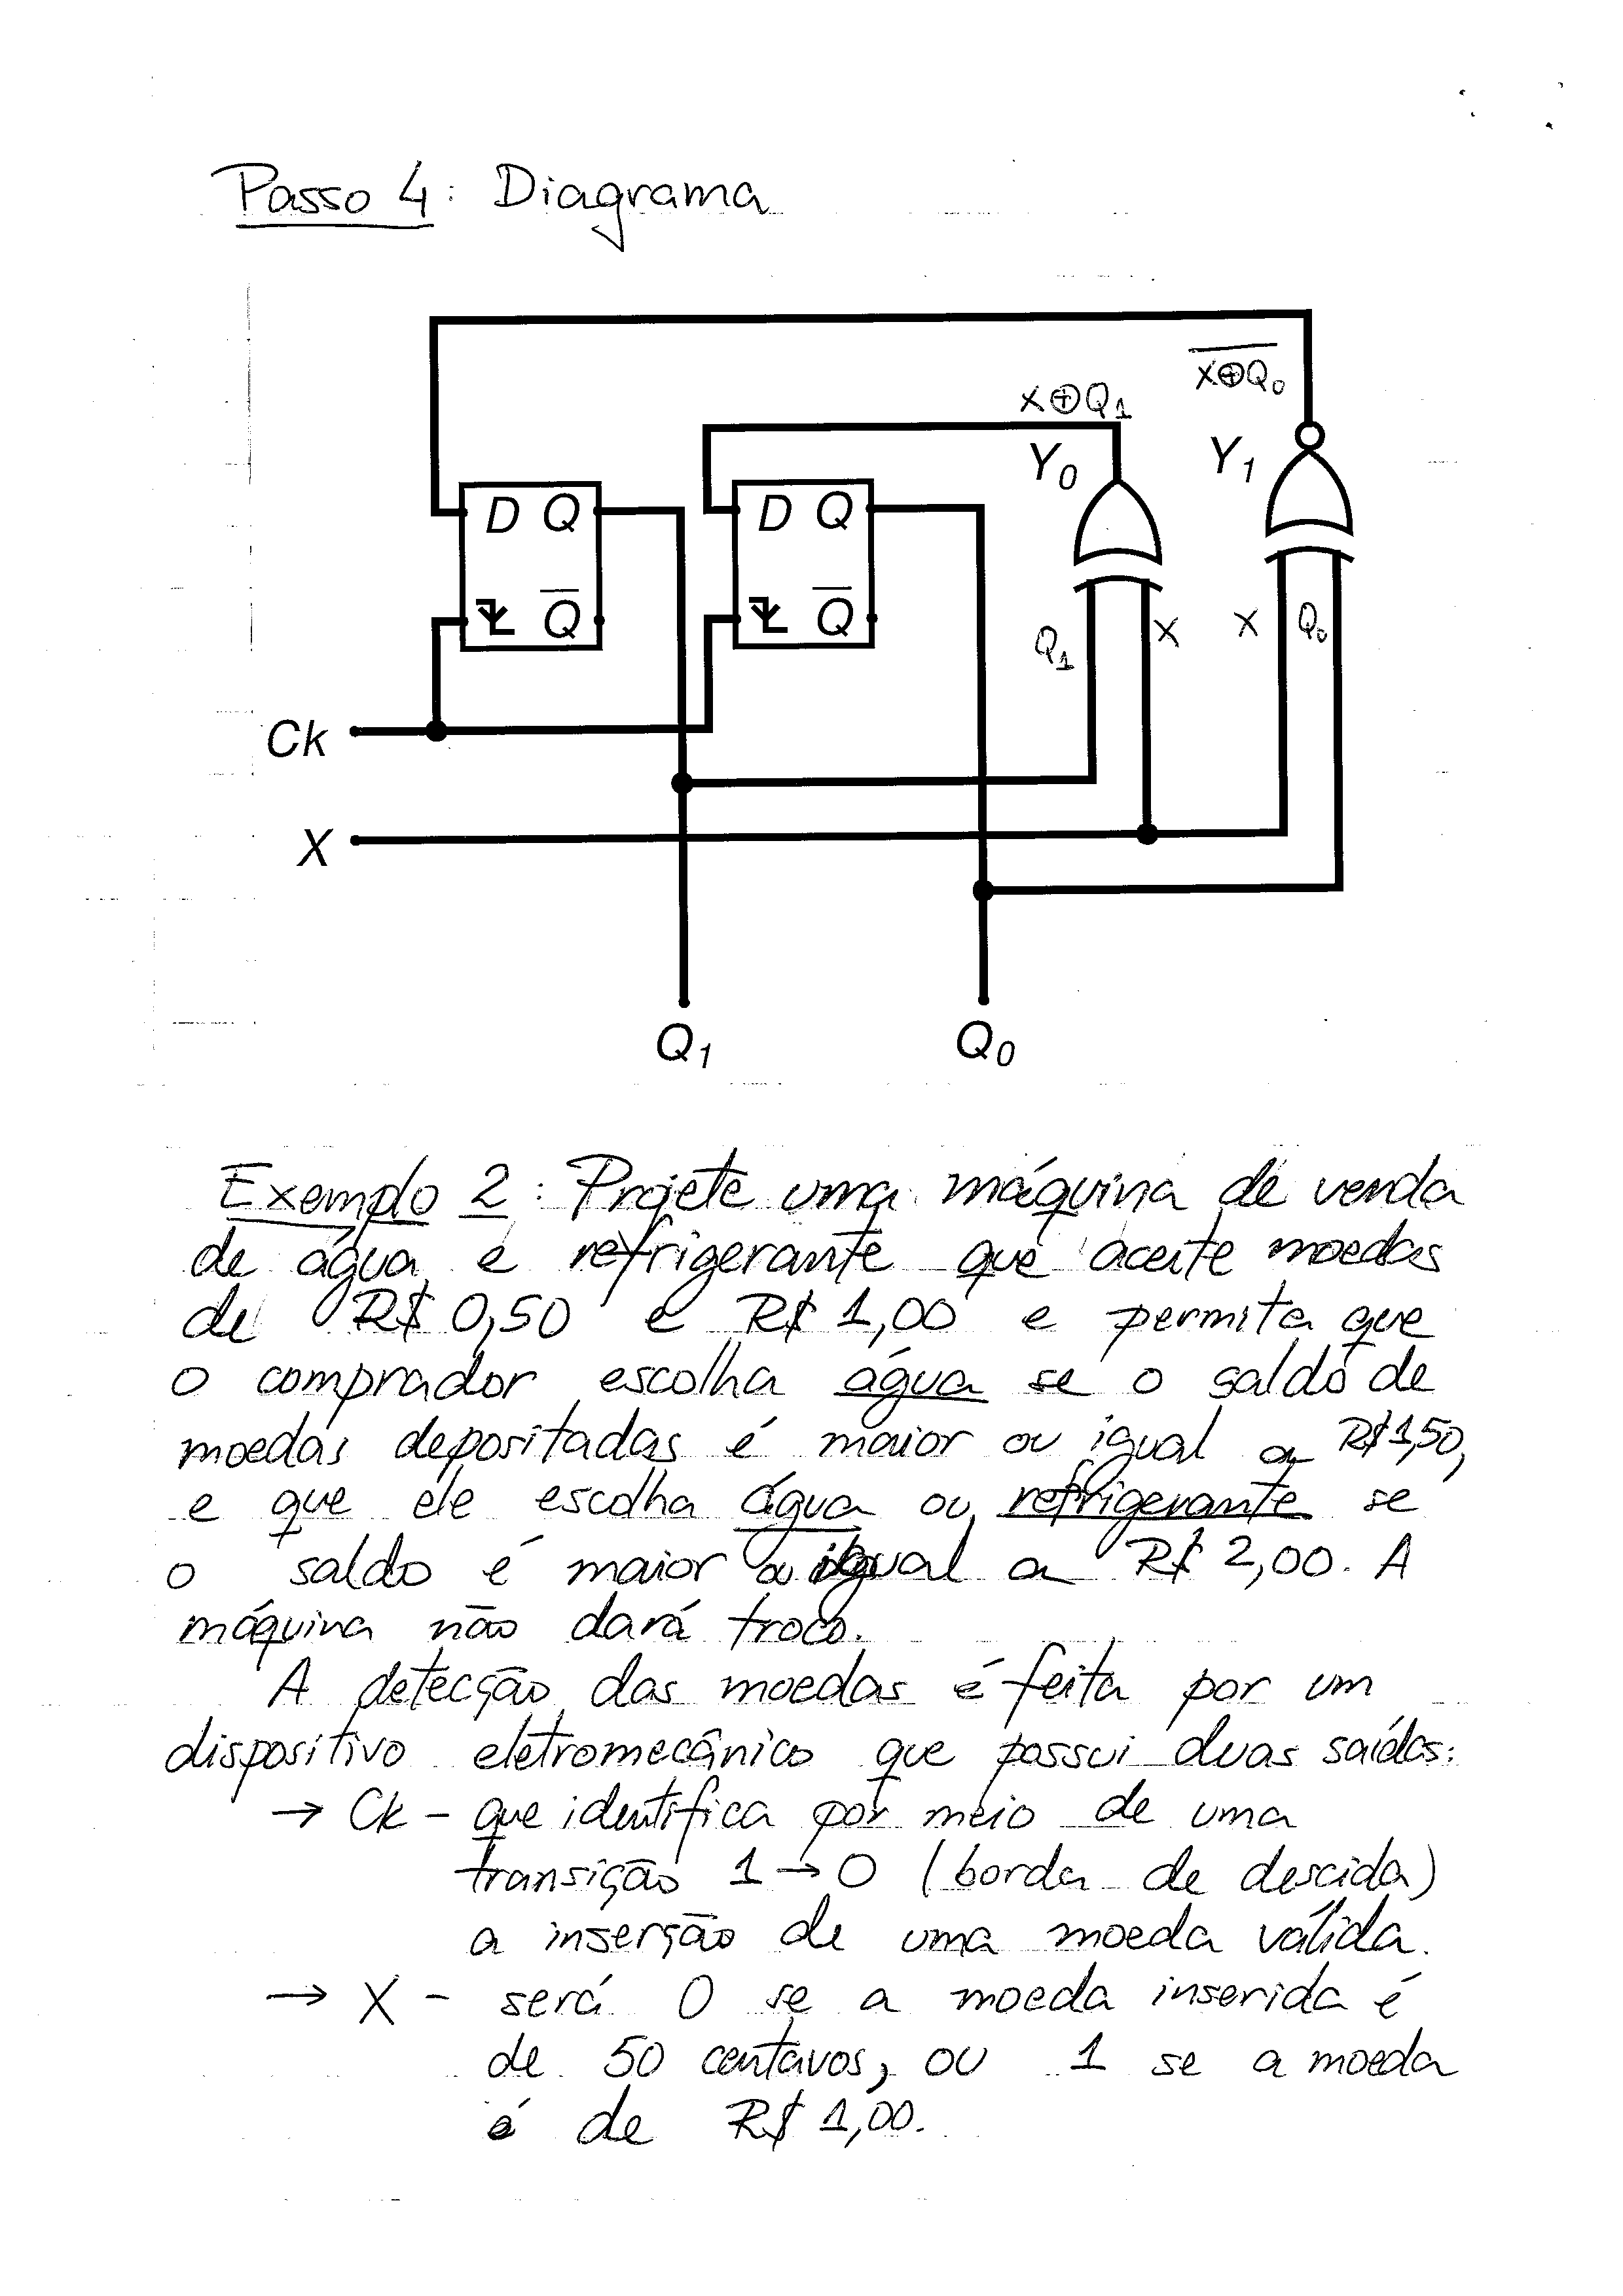 Passo 4: Diagrama
X⊕Q₀
X⊕Q₁
Y₀
Y₁
D Q
D Q
Q
Q
Q₁
X
X
Q₀
Ck
X
Q₁
Q₀
Exemplo 2: Projete uma máquina de venda
de água e refrigerante que aceite moedas
de R$ 0,50 e R$ 1,00 e permita que
o comprador escolha água se o saldo de
moedas depositadas é maior ou igual a R$1,50,
e que ele escolha água ou refrigerante se
o saldo é maior ou igual a R$ 2,00. A
máquina não dará troco.
A detecção das moedas é feita por um
dispositivo eletromecânico que possui duas saídas:
→ Ck - que identifica por meio de uma
transição 1→0 (borda de descida)
a inserção de uma moeda válida.
→ X - será 0 se a moeda inserida é
de 50 centavos, ou 1 se a moeda
é de R$ 1,00.